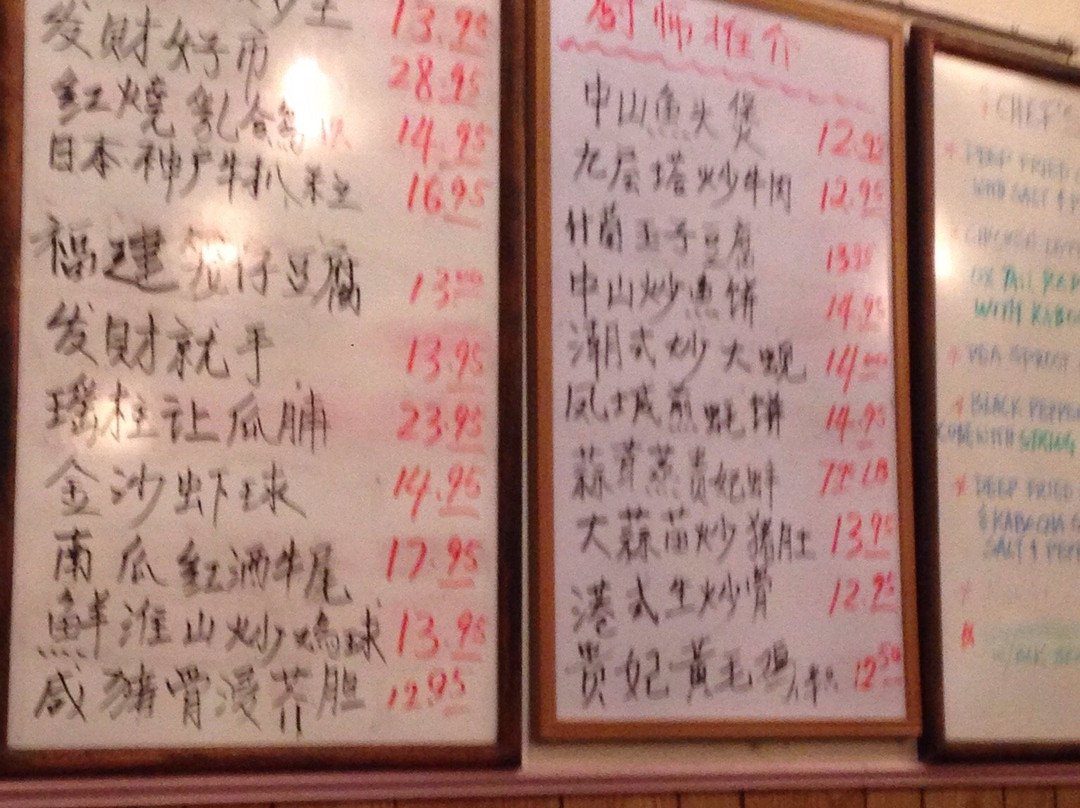 13.95
发财好市 28.95
红燒乳鸽 14.95
日本神户牛扒 16.95
福建 仔豆腐 13.00
发财就手 13.95
瑤柱让瓜脯 23.95
金沙虾球 14.95
南瓜红酒牛尾 17.95
鮮淮山炒鸡球 13.95
咸猪骨浸芥胆 12.95
厨师推介
中山魚头煲 12.95
九层塔炒牛肉 12.95
什菌玉子豆腐 13.95
中山炒魚饼 14.95
潮式炒大蚬 14.00
凤城煎蚝饼 14.95
蒜茸蒸贵妃蚌
大蒜苗炒猪肚 13.95
港式生炒骨 12.95
贵妃黄毛鸡 12.50
CHEF'S
DEEP FRIED
WITH SALT & P
OX TAIL
WITH KABO
PEA SPROUT
BLACK PEPPER
CUBE WITH SPRING
DEEP FRIED
& KABACHA
SALT & PEPP